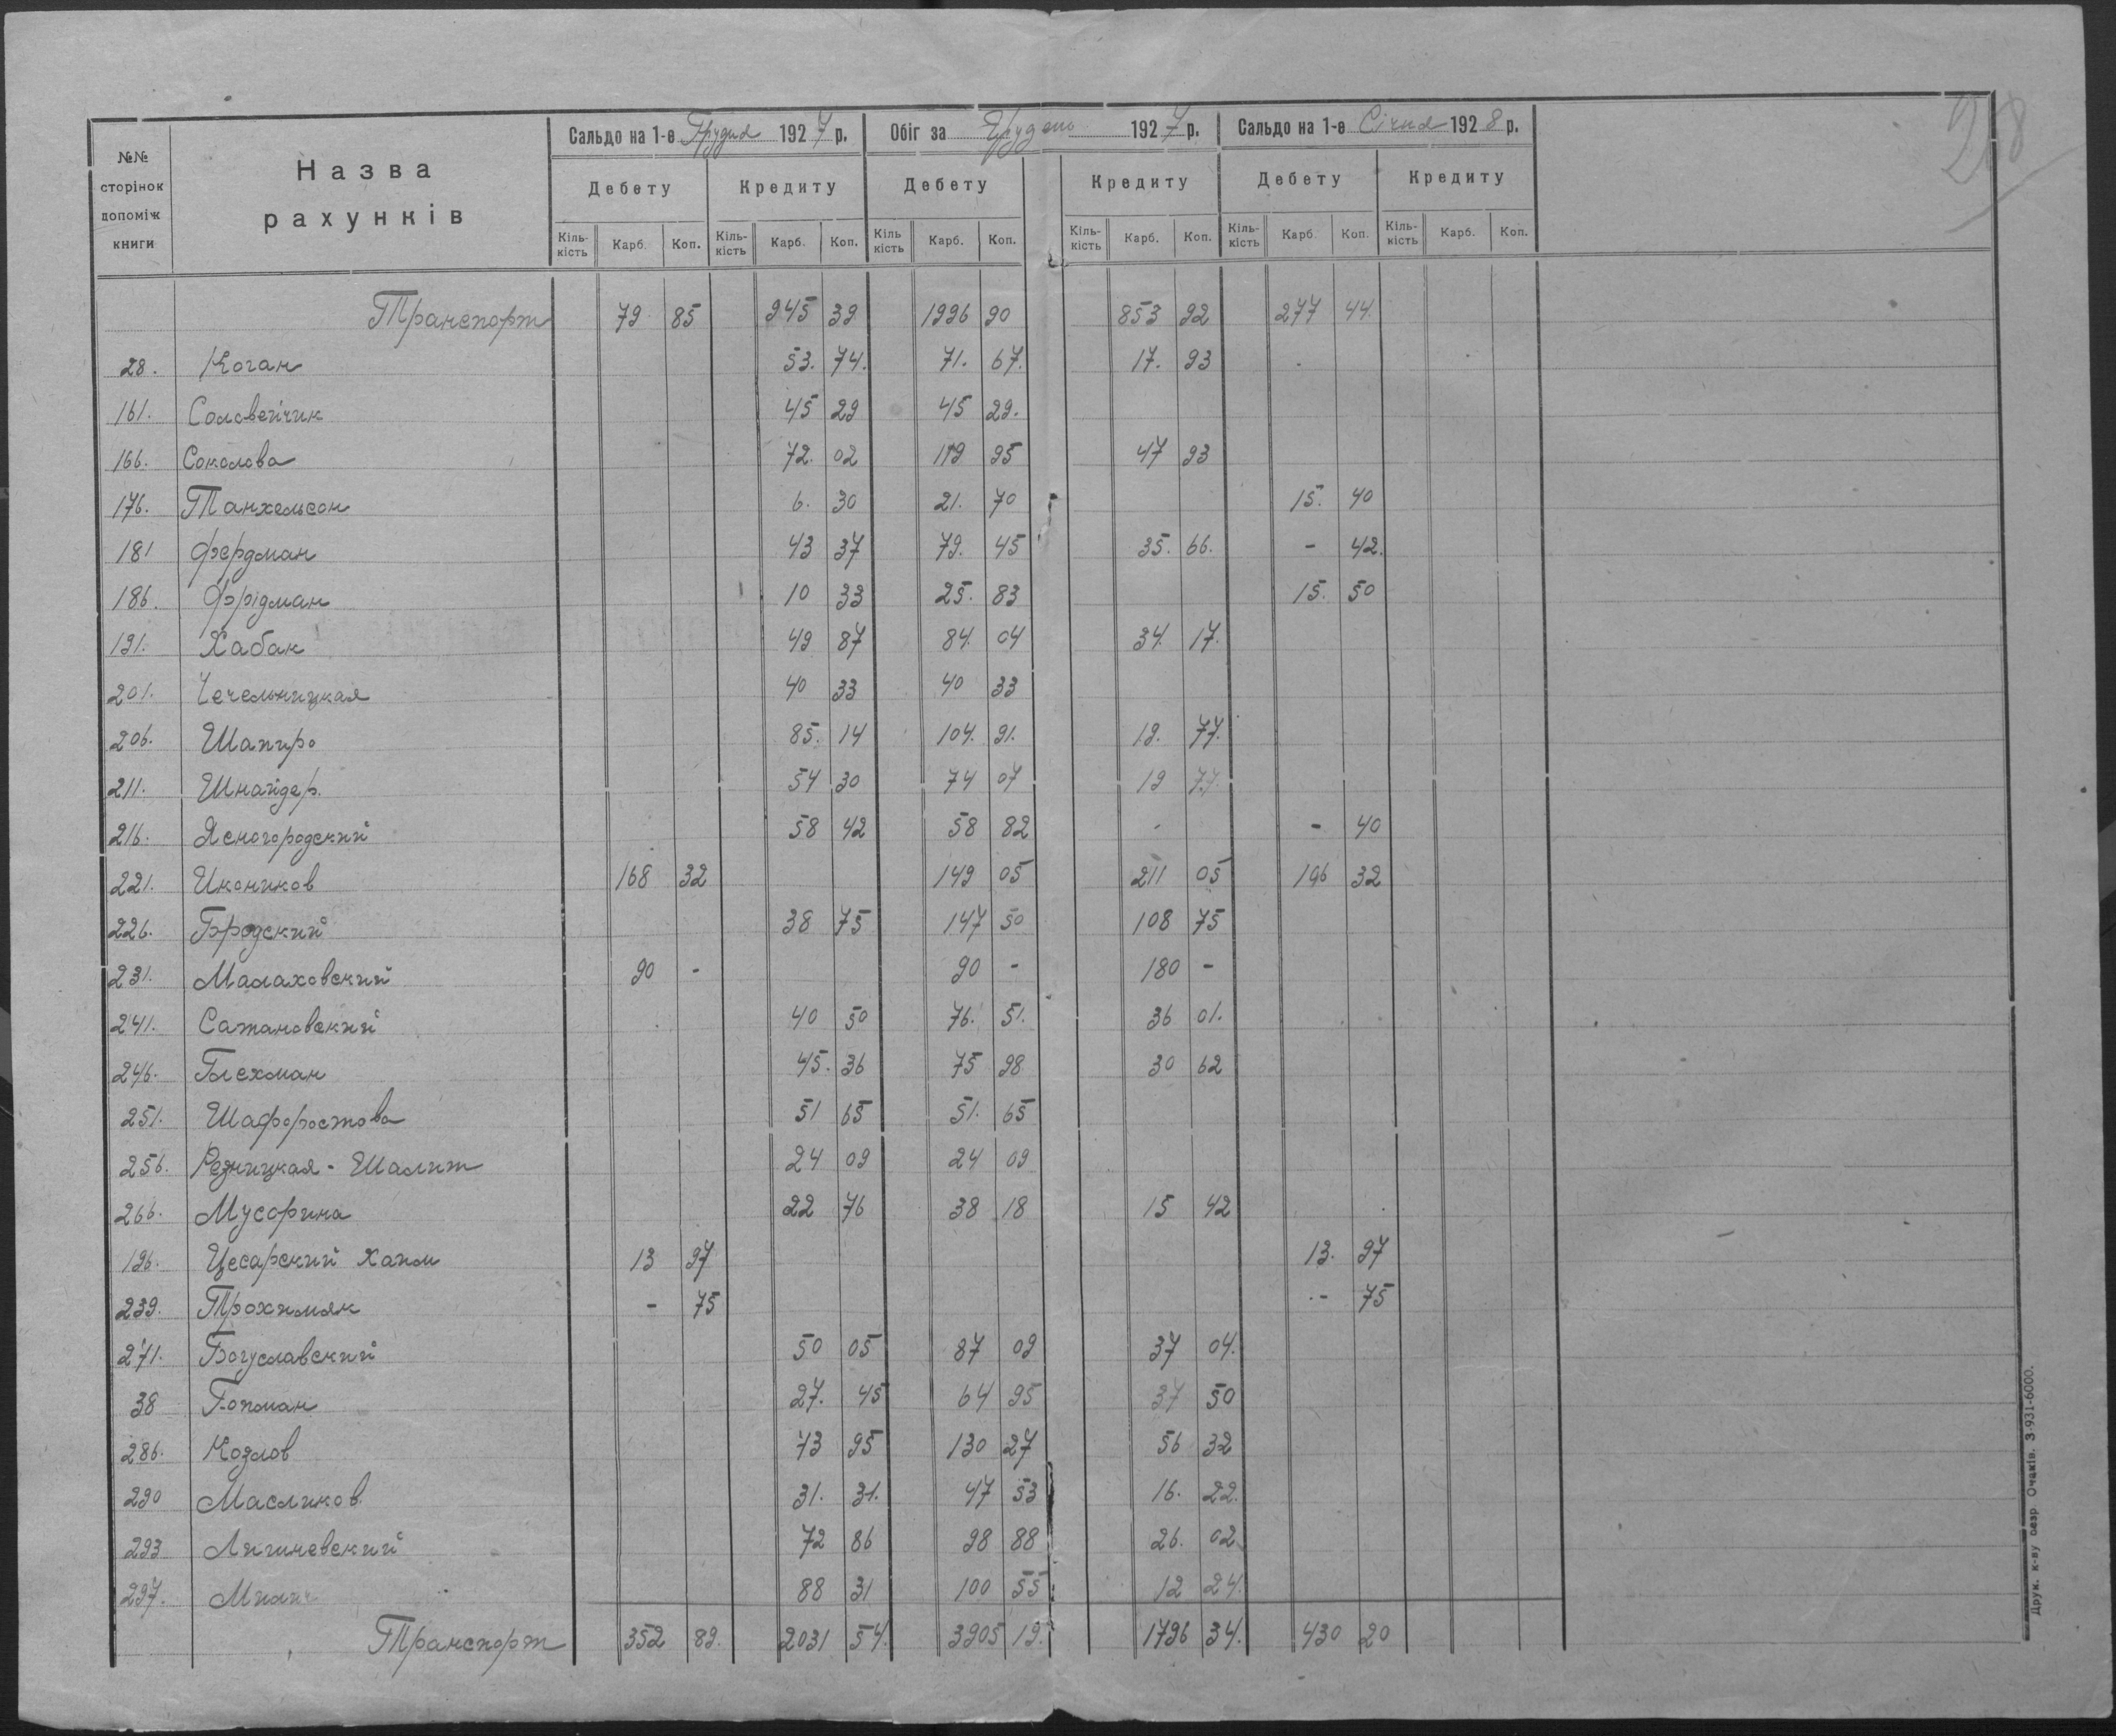 28
№№ сторінок допоміж книги
Назва рахунків
Сальдо на 1-е Грудня 1927 р.
Обіг за Грудень 1927 р.
Сальдо на 1-е Січня 1928 р.
Дебету Кредиту Дебету Кредиту Дебету Кредиту
Кіль-кість Карб. Коп. Кіль-кість Карб. Коп. Кіль кість Карб. Коп. Кіль-кість Карб. Коп. Кіль-кість Карб Коп. Кіль-кість Карб. Коп.
Транспорт 79 85 945 39 1996 90 853 92 277 44.
28. Коган 53. 74. 71. 67. 17. 93
161. Соловейчик 45 29 45 29.
166. Соколова 72. 02 119 95 47 93
176. Танхельсон 6. 30 21. 70 15. 40
181 Фердман 43 37 79. 45 35. 66. - 42.
186. Фрідман 10 33 25. 83 15. 50
191. Хабак 49 87 84. 04 34. 17.
201. Чечельницкая 40 33 40 33
206. Шапиро 85. 14 104. 91. 19. 77.
211. Шнайдер. 54 30 74 07 19 77.
216. Ясногородский 58 42 58 82 - - 40
221. Икоников 168 32 149 05 211 05 106 32
226. Бродский 38 75 147 50 108 75
231. Малаховский 90 - 90 - 180 -
241. Сатановский 40 50 76. 51. 36 01.
246. Блехман 45. 36 75 98 30 62
251. Шафоростова 51 65 51. 65
256. Резницкая - Шалит 24 09 24 09
266. Мусорина 22 76 38 18 15 42
196. Цесарский Хаим 13 97 13. 97
239. Трохимяк - 75 - 75
271. Богуславский 50 05 87 09 37 04.
38 Гопман 27. 45 64 95 37 50
286. Козлов 73 95 130 27 56 32
290 Масликов 31. 31. 47 53 16. 22.
293 Лигиневский 72 86 98 88 26. 02
297. 88 31 100 55 12 24.
Транспорт 352 89. 2031 54. 3905 19. 1796 34. 430 20
Друк. к-ву Очаків. З-931-6000.